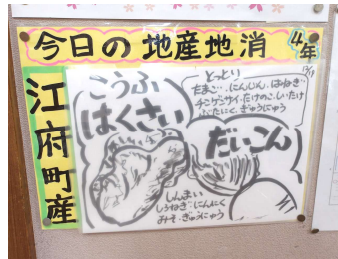 今日の地産地消
4年
江府町産
こうふ
はくさい
とっとり
たまご・にんじん・はねぎ
チンゲンサイ・たけのこ・しいたけ
ぶたにく・ぎゅうにゅう
だいこん
しんまい
しろねぎ・にんにく
みそ・ぎゅうにゅう